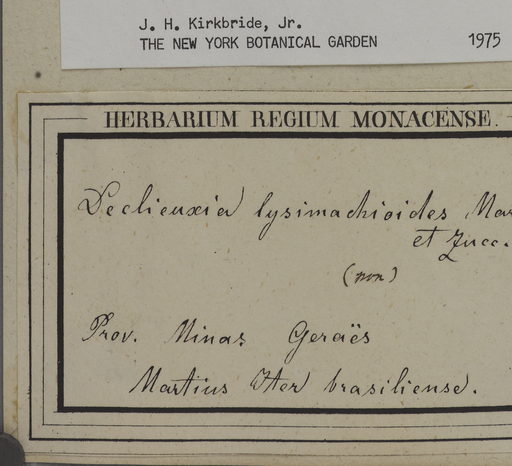 J. H. Kirkbride, Jr.
THE NEW YORK BOTANICAL GARDEN 1975
HERBARIUM REGIUM MONACENSE.
Declieuxia lysimachioides Mar
et Zucc.
(non)
Prov. Minas Geraës
Martius Iter brasiliense.